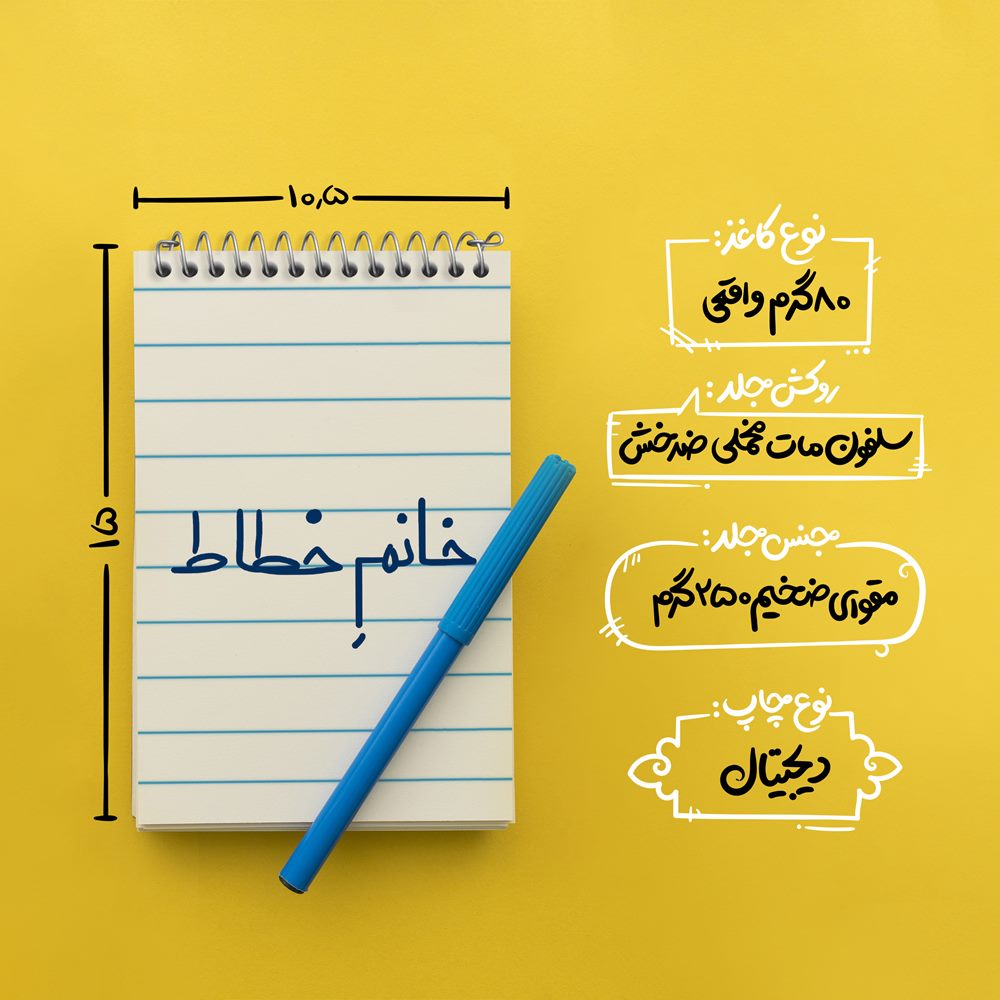 ۱۰٫۵
۱۵
خانمِ خطاط
نوع کاغذ:
۸۰گرم واقعی
روکش جلد:
سلفون مات مخملی ضدخش
جنس جلد:
مقوای ضخیم ۲۵۰گرم
نوع چاپ:
دیجیتال